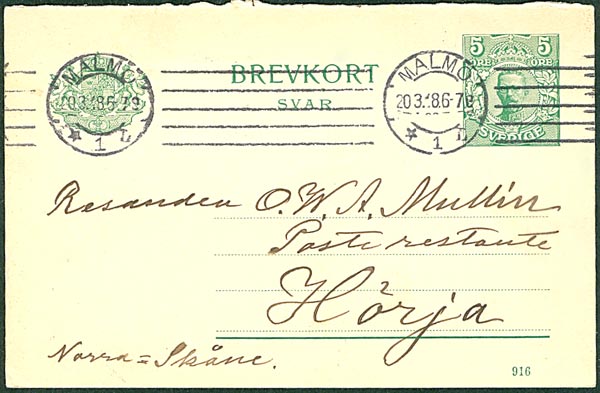 MALMÖ
20.3.18.6-7.9
* 1 L
BREVKORT
SVAR
MALMÖ
20.3.18.6-7.9
* 1 L
5 5
ÖRE ÖRE
SVERIGE
Resanden O. W. A. Mullin
Poste restante
Hörja
Norra=Skåne.
916